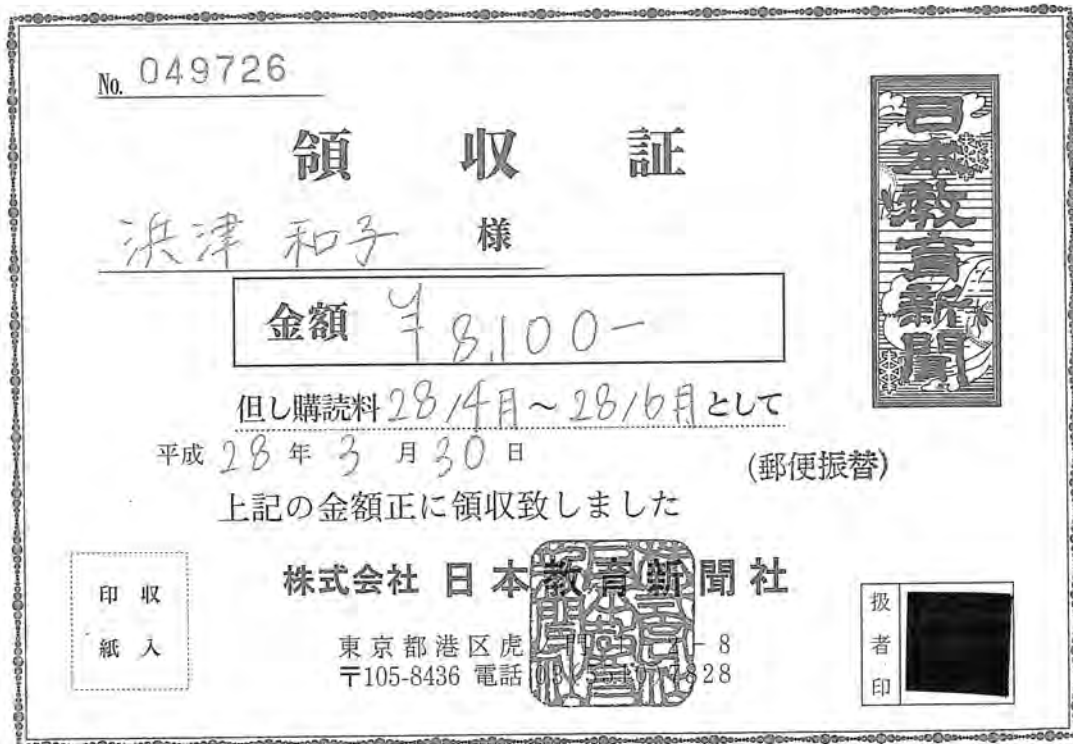 No. 049726
領収証
浜津 和子 様
金額 ¥8,100-
但し購読料 28/4月~28/6月として
平成 28 年 3 月 30 日
(郵便振替)
上記の金額正に領収致しました
株式会社 日本教育新聞社
東京都港区虎 8
〒105-8436 電話 7828
収入
印紙
扱者印
日本教育新聞